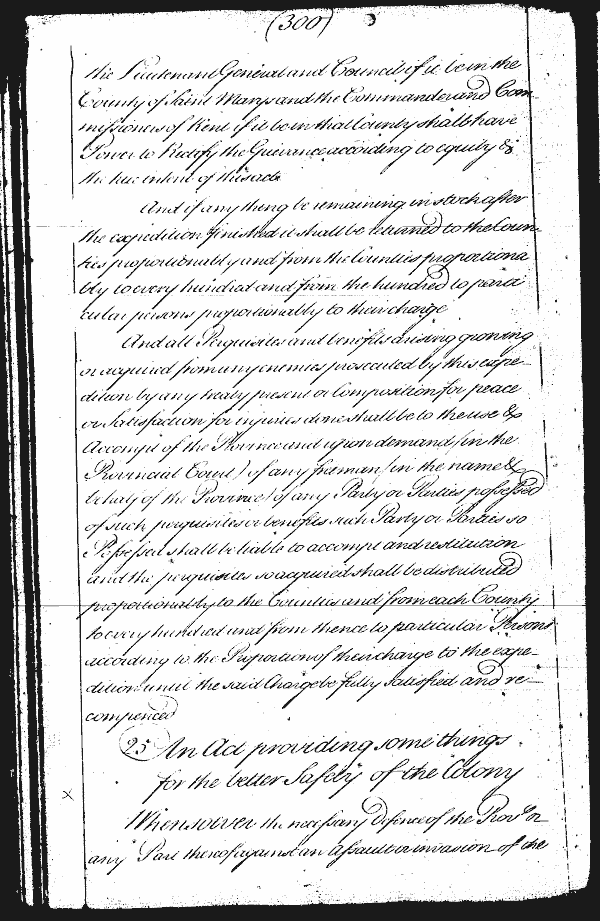 (300)
the Lieutenant General and Council if it be in the
County of Saint Marys and the Commander and Com
missioners of Kent if it be in that County shall have
Power to Rectify the Grievance according to equity &
the true intent of this act
And if any thing be remaining in stock after
the expedition finished it shall be returned to the Coun
ties proportionably and from the Counties proportiona
bly to every hundred and from the hundred to parti
cular persons proportionably to their charge
And all Perquisites and benefits arising growing
or acquired from any enemies prosecuted by this expe-
dition by any treaty present or Composition for peace
or Satisfaction for injuries done shall be to the use &
Accompt of the Province and upon demand (in the
Provincial Court) of any freeman (in the name &
behalf of the Province) of any Party or Parties possessed
of such perquisites or benefits such Party or Parties so
Possessed shall be liable to accompt and restitution
and the perquisites so acquired shall be distributed
proportionably to the Counties and from each County
to every hundred and from thence to particular Persons
according to the Proportion of their charge to the expe-
dition until the said Charge be fully satisfied and re-
compenced
25 An Act providing some things
for the better Safety of the Colony
x
Whensoever the necessary Defence of the Prov.ce or
any Part thereof against an assault or invasion of the